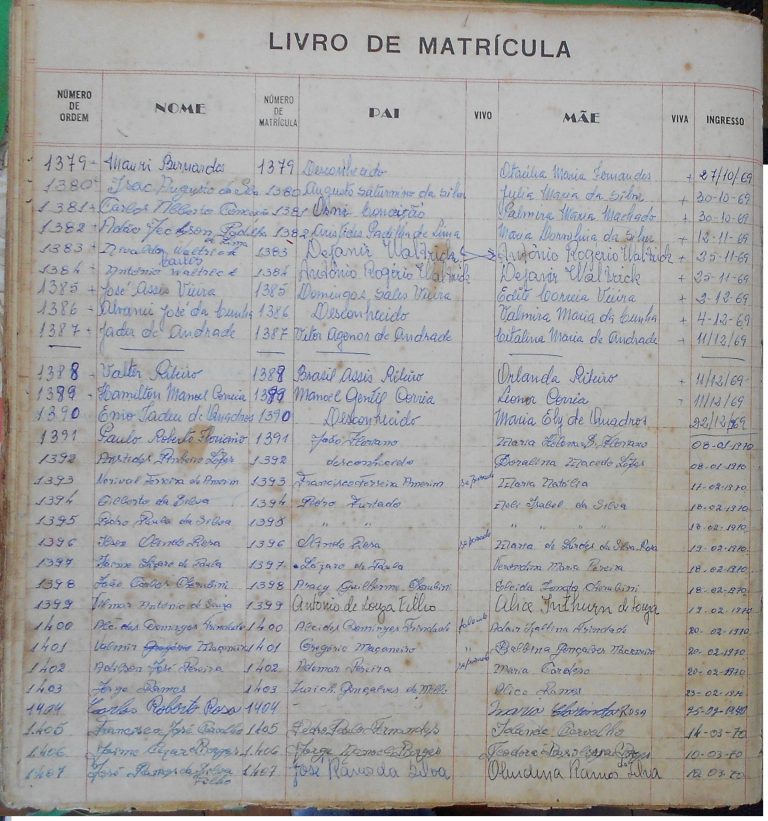 LIVRO DE MATRÍCULA
NÚMERO DE ORDEM NOME NÚMERO DE MATRÍCULA PAI VIVO MÃE VIVA INGRESSO
1379 - Mauri Bernardes 1379 Desconhecido Otacília Maria Fernandes + 27/10/69
1380 - Isac Augusto da Silva 1380 Augusto Saturnino da Silva Julia Maria da Silva + 30-10-69
1381 + Carlos Roberto Conceição 1381 Osni Conceição Palmira Maria Machado + 30-10-69
1382 + Adão Jeckson Padilha de Lima 1382 Aristides Padilha de Lima Maria da Silva + 12-11-69
1383 + Waltrick 1383 Dejanir Waltrick Antônio Rogério Waltrick + 25-11-69
1384 + Antônio Waltrick 1384 Antônio Rogério Waltrick Dejanir Waltrick + 25-11-69
1385 + José Assis Vieira 1385 Domingos Sales Vieira Edite Correia Vieira + 2-12-69
1386 - Alvani José da Cunha 1386 Desconhecido Valmira Maria da Cunha + 4-12-69
1387 - Jader de Andrade 1387 Vitor Agenor de Andrade Catalina Maria de Andrade + 11/12/69
1388 - Valter Ribeiro 1388 Brasil Assis Ribeiro Orlanda Ribeiro + 11/12/69
1389 - Hamilton Manoel Correia 1389 Manoel Gentil Corria Lionor Corria - 11/12/69
1390 Enio Tadeu di Quadros 1390 Desconhecido Maria Ely de Quadros 22/12/69
1391 Paulo Roberto Floriano 1391 João Floriano Maria Helena S. Floriano 08-01-1970
1392 Aristides Antonio Lopes 1392 desconhecido Doralina Macedo Lopes 08-01-1970
1393 Norival Ferreira de Amorim 1393 Francisco Ferreira Amorim separado Maria Natália 11-02-1970
1394 Gilberto da Silva 1394 Pedro Furtado Neli Isabel da Silva 18-02-1970
1395 Pedro Paulo da Silva 1395 " " " " " 18-02-1970
1396 Rosa 1396 Rosa separado Maria de Lurdes da Silva Rosa 19-02-1970
1397 Jaime Lázaro de Paula 1397 Lázaro de Paula Verondina Maria Pereira 18-02-1970
1398 João Carlos Cherubini 1398 Aracy Guilherme Cherubini Cherubini 18-02-1970
1399 Vilmar Antonio de Souza 1399 Antonio de Souza Filho Alice Inthurn de Souza 19-02-1970
1400 Alcides Domingos Trindade 1400 Alcides Domingos Trindade Trindade 20-02-1970
1401 Valmir Maçaneiro 1401 Gregório Maçaneiro " Gonçalves Maçaneiro 20-02-1970
1402 Adilson José Pereira 1402 Ademar Pereira separado Maria Cardoso 20-02-1970
1403 Jorge Ramos 1403 Gonçalves de Mello Alice Ramos 23-02-1970
1404 Carlos Roberto Rosa 1404 - Maria Rosa 25-02-1970
1405 Francisco José Carvalho 1405 Pedro Fernandes Iolanda Carvalho 14-03-70
1406 Jaime Cezar Borges 1406 Jorge Borges Teodora Borges 10-03-70
1407 José Ramos da Silva Filho 1407 José Ramos da Silva Olandina Ramos da Silva 12 03-70